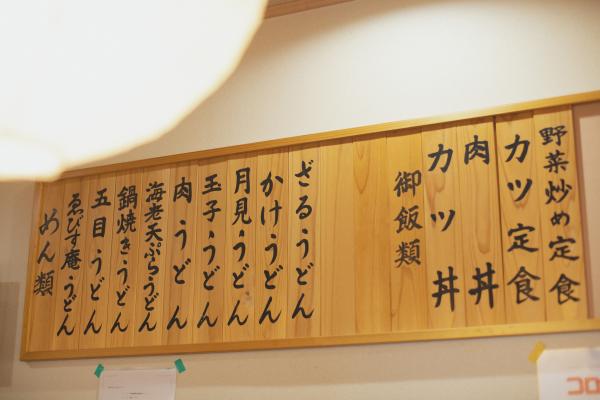 野菜炒め定食
カツ定食
肉丼
カツ丼
御飯類
ざるうどん
かけうどん
月見うどん
玉子うどん
肉うどん
海老天ぷらうどん
鍋焼きうどん
五目うどん
ゑびす庵うどん
めん類
コロ